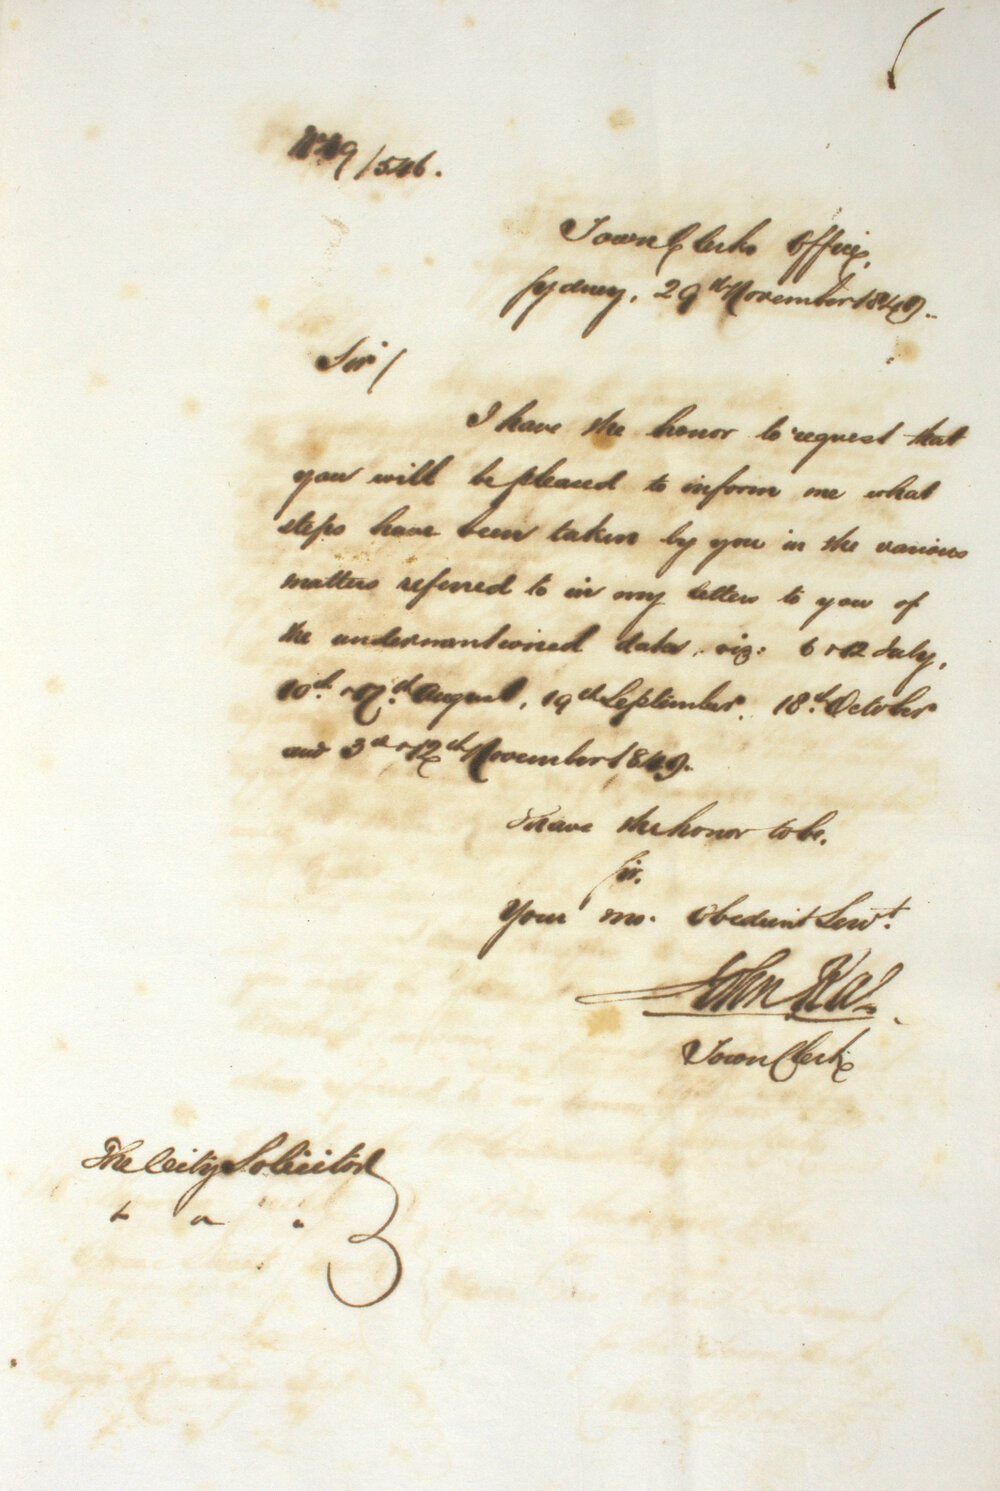 No 49/546.
Town Clerks Office,
Sydney, 29th November 1849.
Sir/
I have the honor to request that
you will be pleased to inform me what
steps have been taken by you in the various
matters referred to in my letters to you of
the undermentioned dates, viz: 6 & 12 July,
10th & 17th August, 19th September, 18th October
and 3rd & 12th November 1849.
I have the honor to be,
Sir,
Your mo. Obedient Servt.
John Rae
Town Clerk
The City Solicitor